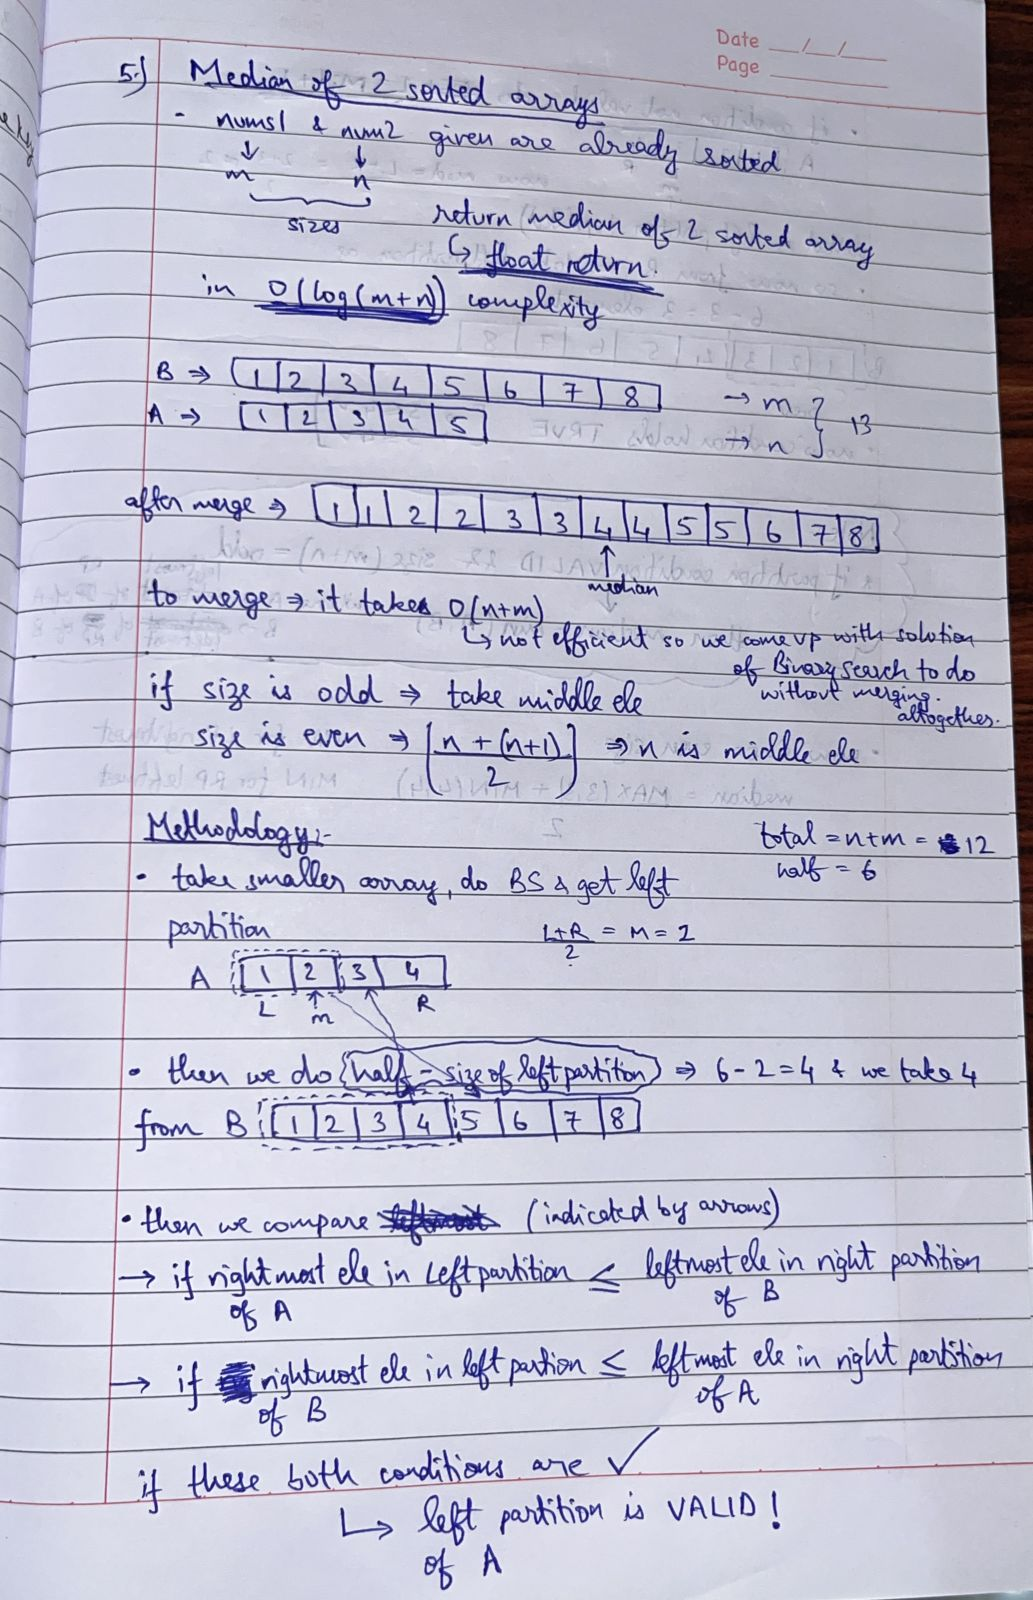 Date __/__/__
Page
5.) Median of 2 sorted arrays
- nums1 & num2 given are already sorted
m n
sizes
return median of 2 sorted array
↳ float return.
in O(log(m+n)) complexity
B ⇒ 1 2 3 4 5 6 7 8 → m } 13
A ⇒ 1 2 3 4 5 → n
after merge ⇒ 1 1 2 2 3 3 4 4 5 5 6 7 8
↑ median
to merge ⇒ it takes O(n+m)
↳ not efficient so we come up with solution
of Binary search to do
without merging.
altogether.
if size is odd ⇒ take middle ele
size is even ⇒ [n + (n+1) / 2] ⇒ n is middle ele
Methodology:-
total = n+m = 12
half = 6
• take smaller array, do BS & get left
partition
L+R / 2 = M = 2
A 1 2 3 4
L m R
• then we do {half - size of left partition} ⇒ 6 - 2 = 4 & we take 4
from B 1 2 3 4 5 6 7 8
• then we compare (indicated by arrows)
→ if rightmost ele in Left partition ≤ leftmost ele in right partition
of A of B
→ if rightmost ele in left partion ≤ leftmost ele in right partition
of B of A
if these both conditions are ✓
↳ left partition is VALID!
of A